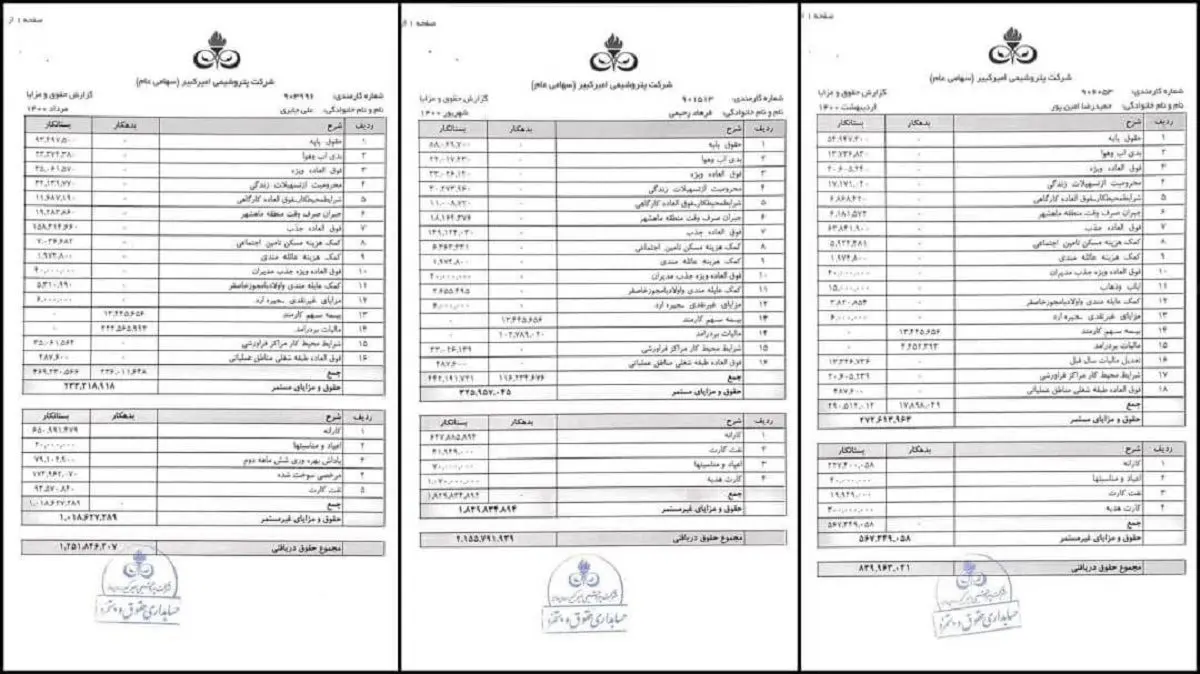 صفحه ۱
شرکت پتروشیمی امیرکبیر (سهامی عام)
شماره کارمندی: ۹۰۶۰۵۳ گزارش حقوق و مزایا
نام و نام خانوادگی: حمیدرضا امین پور اردیبهشت ۱۴۰۰
ردیف شرح بدهکار بستانکار
۱ حقوق پایه ۰ ۵۴,۹۴۷,۳۰۰
۲ بدی آب وهوا ۰ ۱۳,۷۳۶,۸۲۰
۳ فوق العاده ویژه ۰ ۲۰,۶۰۵,۲۴۰
۴ محرومیت ازتسهیلات زندگی ۰ ۱۷,۱۷۱,۰۲۰
۵ شرایط‌محیط‌کار_فوق العاده کارگاهی ۰ ۶,۸۶۸,۴۲۰
۶ جبران صرف وقت منطقه ماهشهر ۰ ۶,۱۸۱,۵۷۲
۷ فوق العاده جذب ۰ ۶۳,۸۴۱,۹۰۰
۸ کمک هزینه مسکن تامین اجتماعی ۰ ۵,۹۲۲,۴۸۱
۹ کمک هزینه عائله مندی ۰ ۱,۹۷۴,۸۰۰
۱۰ فوق العاده ویژه جذب مدیران ۰ ۴۰,۰۰۰,۰۰۰
۱۱ ایاب وذهاب ۰ ۱۵,۰۰۰,۰۰۰
۱۲ کمک عایله مندی واولادبامجوزخاصقر ۰ ۳,۸۲۰,۸۵۴
۱۳ مزایای غیرنقدی _جیره ارد ۰ ۶,۰۰۰,۰۰۰
۱۴ بیمه سهم کارمند ۱۳,۴۴۵,۶۵۶ ۰
۱۵ مالیات بردرامد ۴,۴۵۲,۳۷۳ ۰
۱۶ تعدیل مالیات سال قبل ۰ ۱۳,۳۴۶,۷۳۶
۱۷ شرایط محیط کار مراکز فراورشی ۰ ۲۰,۶۰۵,۲۳۹
۱۸ فوق العاده طبقه شغلی مناطق عملیاتی ۰ ۴۸۷,۶۰۰
جمع ۱۷,۸۹۸,۰۲۹ ۲۹۰,۵۱۲,۰۱۲
حقوق و مزایای مستمر ۲۷۲,۶۱۳,۹۶۳
ردیف شرح بدهکار بستانکار
۱ کارانه ۲۲۷,۴۰۰,۰۵۸
۲ اعیاد و مناسبتها ۴۰,۰۰۰,۰۰۰
۳ نفت کارت ۱۹,۹۴۹,۰۰۰
۴ کارت هدیه
جمع ۵۶۷,۳۴۹,۰۵۸
حقوق و مزایای غیرمستمر ۵۶۷,۳۴۹,۰۵۸
مجموع حقوق دریافتی ۸۳۹,۹۶۳,۰۲۱
حسابداری حقوق و
صفحه ۱ از
شرکت پتروشیمی امیرکبیر (سهامی عام)
شماره کارمندی: ۹۰۶۵۱۳ گزارش حقوق و مزایا
نام و نام خانوادگی: فرهاد رحیمی شهریور ۱۴۰۰
ردیف شرح بدهکار بستانکار
۱ حقوق پایه ۰ ۸۸,۰۶۹,۷۰۰
۲ بدی آب وهوا ۰ ۲۲,۰۱۷,۴۳۰
۳ فوق العاده ویژه ۰ ۳۳,۰۲۶,۱۴۰
۴ محرومیت ازتسهیلات زندگی ۰ ۳۰,۲۷۳,۹۶۰
۵ شرایط‌محیط‌کار_فوق العاده کارگاهی ۰ ۱۱,۰۰۸,۷۲۰
۶ جبران صرف وقت منطقه ماهشهر ۰ ۱۸,۱۶۴,۳۷۶
۷ فوق العاده جذب ۰ ۱۴۹,۱۲۴,۰۳۰
۸ کمک هزینه مسکن تامین اجتماعی ۰
۹ کمک هزینه عائله مندی ۰ ۱,۹۷۴,۸۰۰
۱۰ فوق العاده ویژه جذب مدیران ۰ ۴۰,۰۰۰,۰۰۰
۱۱ کمک عایله مندی واولادبامجوزخاصقر ۰ ۳,۶۵۵,۴۹۵
۱۲ مزایای غیرنقدی _جیره ارد ۰ ۶,۰۰۰,۰۰۰
۱۳ بیمه سهم کارمند ۱۳,۴۴۵,۶۵۶ ۰
۱۴ مالیات بردرامد ۱۰۲,۷۸۹,۰۲۰ ۰
۱۵ شرایط محیط کار مراکز فراورشی ۰ ۳۳,۰۲۶,۱۳۹
۱۶ فوق العاده طبقه شغلی مناطق عملیاتی ۰ ۳۸۷,۶۰۰
جمع ۱۱۶,۲۳۴,۶۷۶ ۴۴۲,۱۹۱,۷۲۱
حقوق و مزایای مستمر ۳۲۵,۹۵۷,۰۴۵
ردیف شرح بدهکار بستانکار
۱ کارانه ۶۴۷,۸۸۵,۸۹۴
۲ نفت کارت ۴۱,۹۴۹,۰۰۰
۳ اعیاد و مناسبتها ۷۰,۰۰۰,۰۰۰
۴ کارت هدیه ۱,۰۷۰,۰۰۰,۰۰۰
جمع ۱,۸۲۹,۸۳۴,۸۹۴
حقوق و مزایای غیرمستمر ۱,۸۲۹,۸۳۴,۸۹۴
مجموع حقوق دریافتی ۲,۱۵۵,۷۹۱,۹۳۹
حسابداری حقوق و
صفحه ۱ از
شرکت پتروشیمی امیرکبیر (سهامی عام)
شماره کارمندی: ۹۰۳۹۹۶ گزارش حقوق و مزایا
نام و نام خانوادگی: علی جابری مرداد ۱۴۰۰
ردیف شرح بدهکار بستانکار
۱ حقوق پایه ۰ ۹۳,۴۹۷,۵۰۰
۲ بدی آب وهوا ۰ ۲۳,۳۷۴,۳۸۰
۳ فوق العاده ویژه ۰ ۳۵,۰۶۱,۵۷۰
۴ محرومیت ازتسهیلات زندگی ۰ ۳۲,۱۳۹,۷۷۰
۵ شرایط‌محیط‌کار_فوق العاده کارگاهی ۰ ۱۱,۶۸۷,۱۹۰
۶ جبران صرف وقت منطقه ماهشهر ۰ ۱۹,۲۸۳,۸۶۰
۷ فوق العاده جذب ۰ ۱۵۸,۳۲۴,۶۶۰
۸ کمک هزینه مسکن تامین اجتماعی ۰ ۷,۰۳۶,۶۸۲
۹ کمک هزینه عائله مندی ۰ ۱,۹۷۴,۸۰۰
۱۰ فوق العاده ویژه جذب مدیران ۰ ۴۰,۰۰۰,۰۰۰
۱۱ کمک عایله مندی واولادبامجوزخاصقر ۰ ۵,۳۱۰,۹۹۰
۱۲ مزایای غیرنقدی _جیره ارد ۰ ۶,۰۰۰,۰۰۰
۱۳ بیمه سهم کارمند ۱۳,۴۴۵,۶۵۶ ۰
۱۴ مالیات بردرامد ۲۲۲,۵۶۵,۹۹۲ ۰
۱۵ شرایط محیط کار مراکز فراورشی ۰ ۳۵,۰۶۱,۵۶۴
۱۶ فوق العاده طبقه شغلی مناطق عملیاتی ۰ ۴۸۷,۶۰۰
جمع ۲۳۶,۰۱۱,۶۴۸ ۴۶۹,۲۳۰,۵۶۶
حقوق و مزایای مستمر ۲۳۳,۲۱۸,۹۱۸
ردیف شرح بدهکار بستانکار
۱ کارانه
۲ اعیاد و مناسبتها
۳ پاداش بهره وری شش ماهه دوم ۷۹,۱۰۲,۹۰۰
۴ مرخصی سوخت شده
۵ نفت کارت
جمع ۱,۰۱۸,۶۲۷,۳۸۹
حقوق و مزایای غیرمستمر ۱,۰۱۸,۶۲۷,۳۸۹
مجموع حقوق دریافتی ۱,۲۵۱,۸۴۶,۳۰۷
حسابداری حقوق و